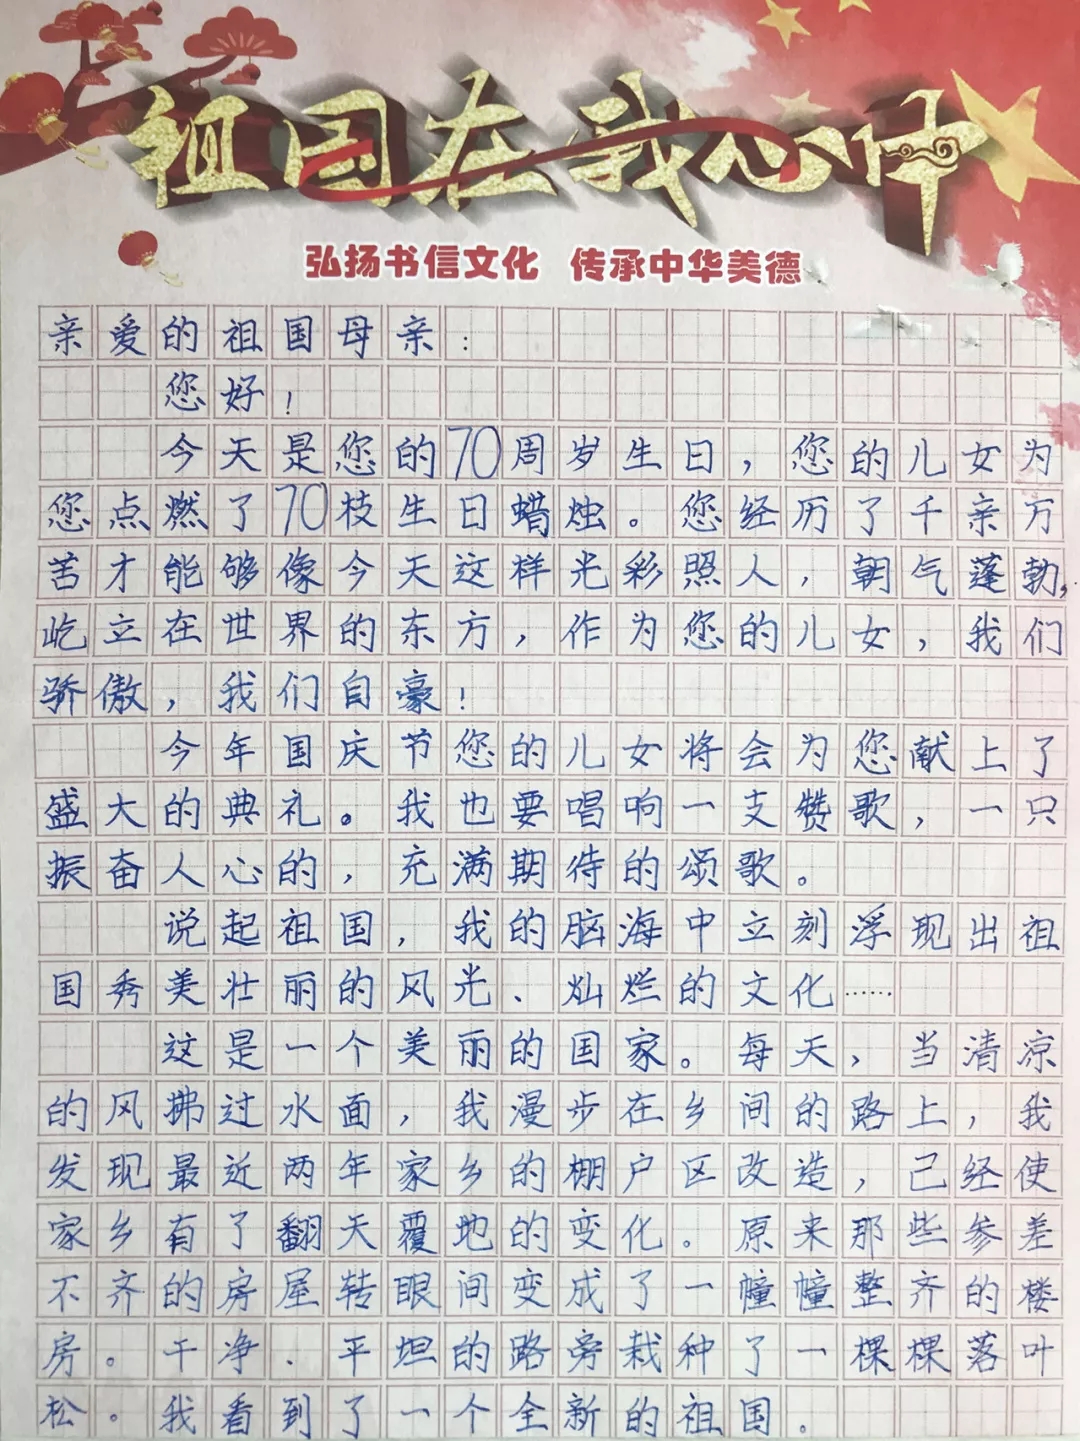 祖国在我心中
弘扬书信文化 传承中华美德
亲爱的祖国母亲：
您好！
今天是您的70周岁生日，您的儿女为
您点燃了70枝生日蜡烛。您经历了千亲万
苦才能够像今天这样光彩照人，朝气蓬勃，
屹立在世界的东方，作为您的儿女，我们
骄傲，我们自豪！
今年国庆节您的儿女将会为您献上了
盛大的典礼。我也要唱响一支赞歌，一只
振奋人心的，充满期待的颂歌。
说起祖国，我的脑海中立刻浮现出祖
国秀美壮丽的风光、灿烂的文化……
这是一个美丽的国家。每天，当清凉
的风拂过水面，我漫步在乡间的路上，我
发现最近两年家乡的棚户区改造，己经使
家乡有了翻天覆地的变化。原来那些参差
不齐的房屋转眼间变成了一幢幢整齐的楼
房。干净．平坦的路旁栽种了一棵棵落叶
松。我看到了一个全新的祖国。